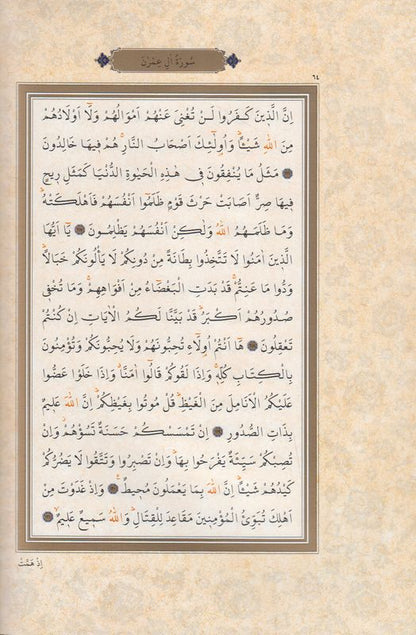 سُورَةُ اٰلِ عِمْرٰنَ
٦٤
اِنَّ الَّذٖينَ كَفَرُوا لَنْ تُغْنِيَ عَنْهُمْ اَمْوَالُهُمْ وَلَٓا اَوْلَادُهُمْ
مِنَ اللّٰهِ شَيْـًٔاۜ وَاُو۬لٰٓئِكَ اَصْحَابُ النَّارِۚ هُمْ فٖيهَا خَالِدُونَ
مَثَلُ مَا يُنْفِقُونَ فٖي هٰذِهِ الْحَيٰوةِ الدُّنْيَا كَمَثَلِ رٖيحٍ
فٖيهَا صِرٌّ اَصَابَتْ حَرْثَ قَوْمٍ ظَلَمُٓوا اَنْفُسَهُمْ فَاَهْلَكَتْهُۜ
وَمَا ظَلَمَهُمُ اللّٰهُ وَلٰكِنْ اَنْفُسَهُمْ يَظْلِمُونَ يَٓا اَيُّهَا
الَّذٖينَ اٰمَنُوا لَا تَتَّخِذُوا بِطَانَةً مِنْ دُونِكُمْ لَا يَأْلُونَكُمْ خَبَالاًۜ
وَدُّوا مَا عَنِتُّمْۚ قَدْ بَدَتِ الْبَغْضَٓاءُ مِنْ اَفْوَاهِهِمْۚ وَمَا تُخْفٖي
صُدُورُهُمْ اَكْبَرُۜ قَدْ بَيَّنَّا لَكُمُ الْاٰيَاتِ اِنْ كُنْتُمْ
تَعْقِلُونَ هَٓا اَنْتُمْ اُو۬لَٓاءِ تُحِبُّونَهُمْ وَلَا يُحِبُّونَكُمْ وَتُؤْمِنُونَ
بِالْكِتَابِ كُلِّهٖۚ وَاِذَا لَقُوكُمْ قَالُٓوا اٰمَنَّاۗ وَاِذَا خَلَوْا عَضُّوا
عَلَيْكُمُ الْاَنَامِلَ مِنَ الْغَيْظِۜ قُلْ مُوتُوا بِغَيْظِكُمْۜ اِنَّ اللّٰهَ عَلٖيمٌ
بِذَاتِ الصُّدُورِ اِنْ تَمْسَسْكُمْ حَسَنَةٌ تَسُؤْهُمْۘ وَاِنْ
تُصِبْكُمْ سَيِّئَةٌ يَفْرَحُوا بِهَاۜ وَاِنْ تَصْبِرُوا وَتَتَّقُوا لَا يَضُرُّكُمْ
كَيْدُهُمْ شَيْـًٔاۜ اِنَّ اللّٰهَ بِمَا يَعْمَلُونَ مُحٖيطٌ وَاِذْ غَدَوْتَ مِنْ
اَهْلِكَ تُبَوِّئُ الْمُؤْمِنٖينَ مَقَاعِدَ لِلْقِتَالِۜ وَاللّٰهُ سَمٖيعٌ عَلٖيمٌ
اِذْ هَمَّتْ